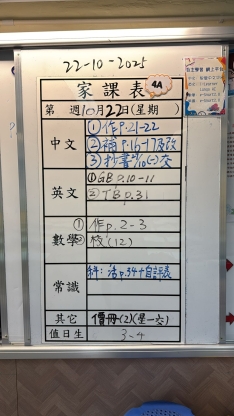 22-10-2025
家課表
4A
第 週10月22日(星期 )
中文
①作P.21-22
②補P.16-17及改
英文
①GB P.10-11
②TB P.31
數學
①作P.2-3
②校(12)
常識
科:活P.34+自評表
其它
值日生
3-4